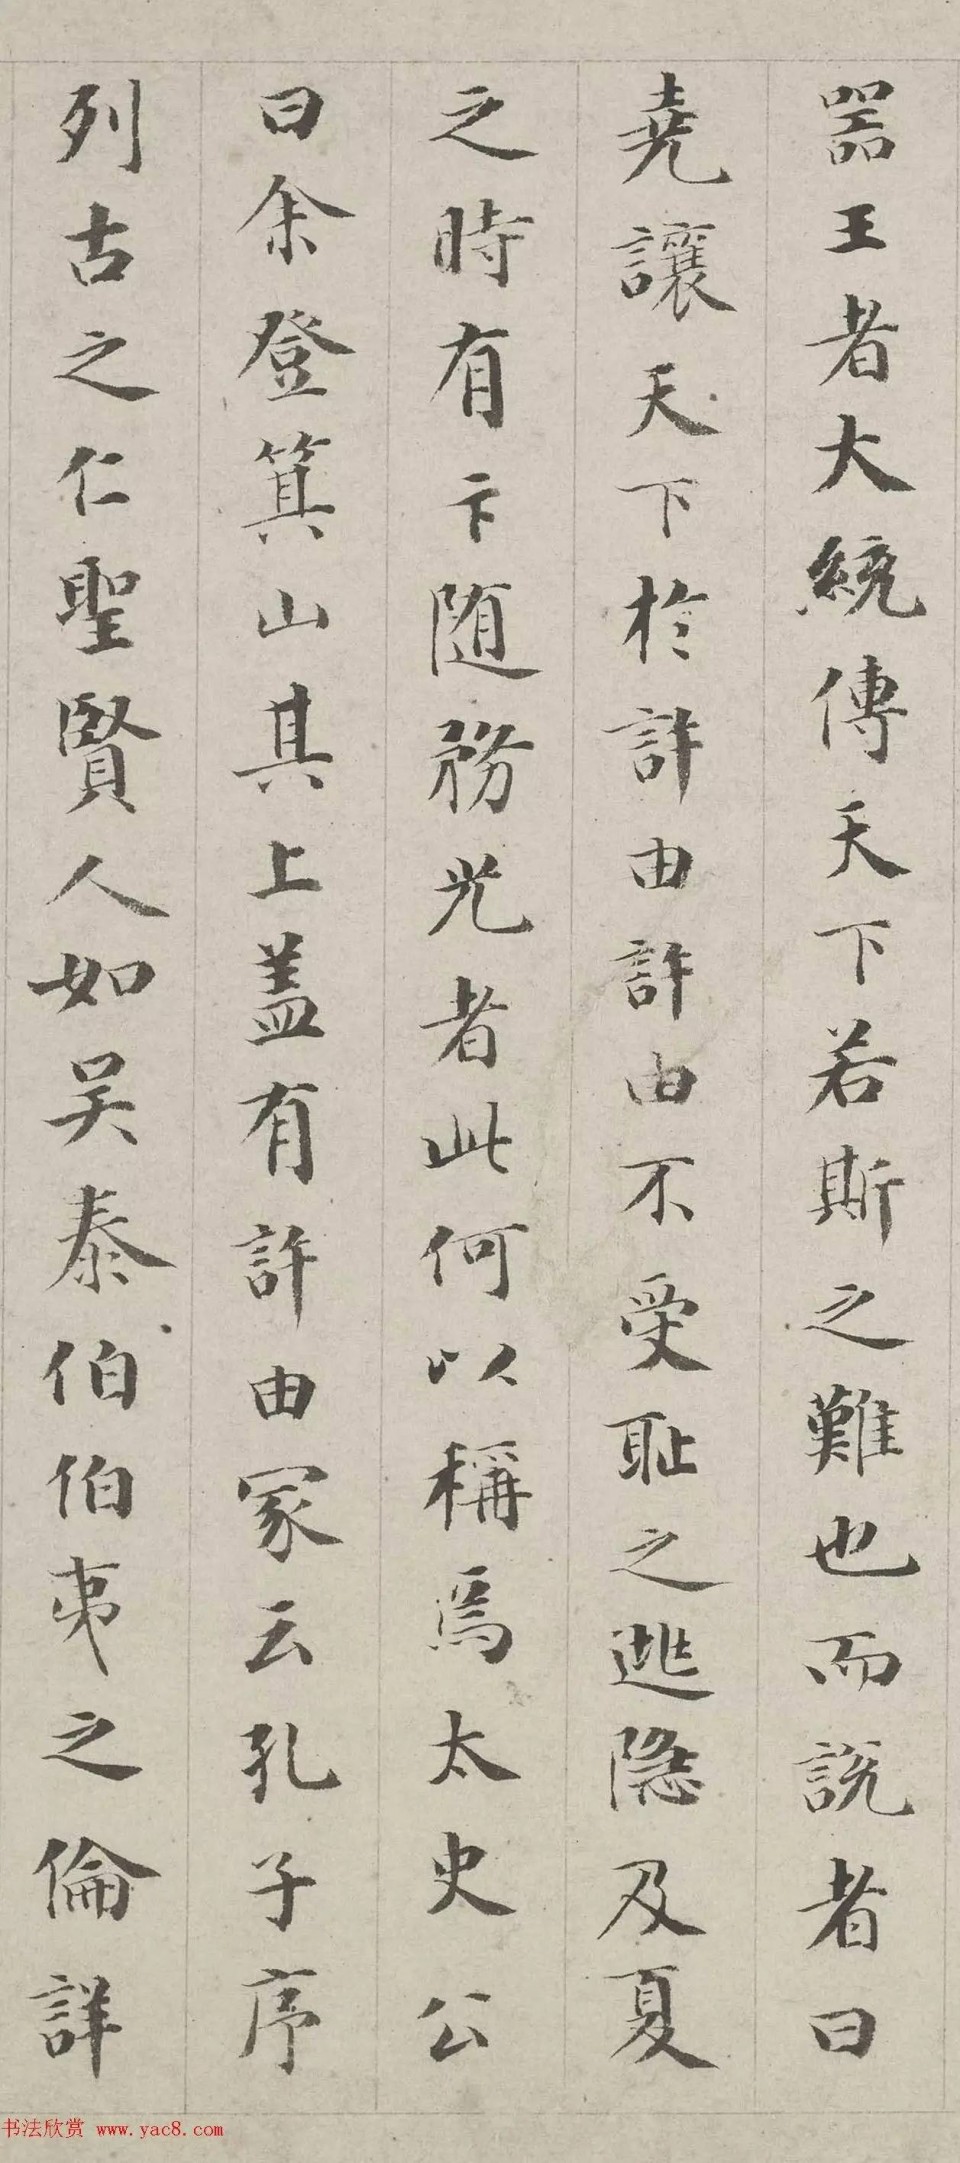 器王者大統傳天下若斯之難也而說者曰
堯讓天下於許由許由不受耻之逃隱及夏
之時有卞随務光者此何以稱焉太史公
曰余登箕山其上盖有許由冢云孔子序
列古之仁聖賢人如吴泰伯伯夷之倫詳
书法欣赏 www.yac8.com